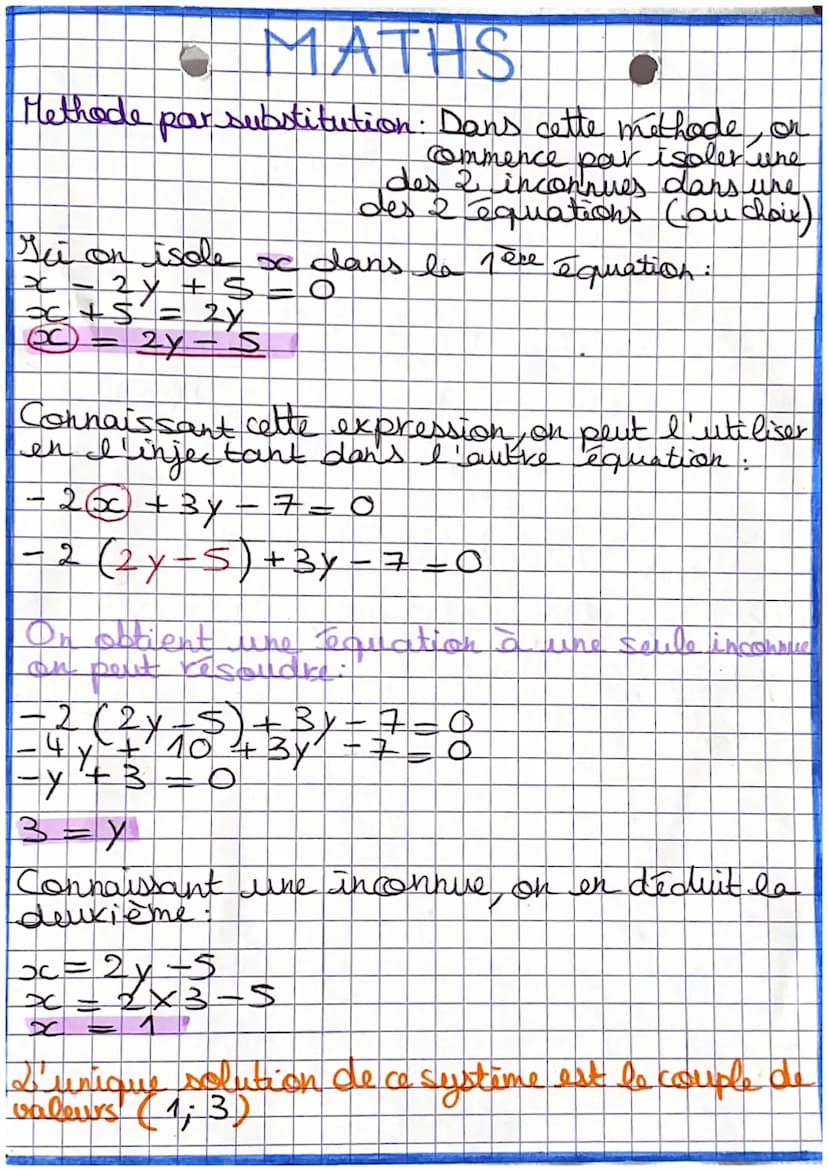 MATHS
Methode par substitution : Dans cette méthode, on
commence par isoler une
des 2 inconnues dans une
des 2 équations (au choix)
Ici on isole x dans la 1ère équation :
x - 2y + 5 = 0
x + 5 = 2y
x = 2y - 5
Connaissant cette expression, on peut l'utiliser
en l'injectant dans l'autre équation :
- 2x + 3y - 7 = 0
- 2 (2y - 5) + 3y - 7 = 0
On obtient une équation à une seule inconnue
on peut résoudre :
- 2 (2y - 5) + 3y - 7 = 0
- 4y + 10 + 3y - 7 = 0
- y + 3 = 0
3 = y
Connaissant une inconnue, on en déduit la
deuxième :
x = 2y - 5
x = 2 x 3 - 5
x = 1
L'unique solution de ce système est le couple de
valeurs (1; 3)